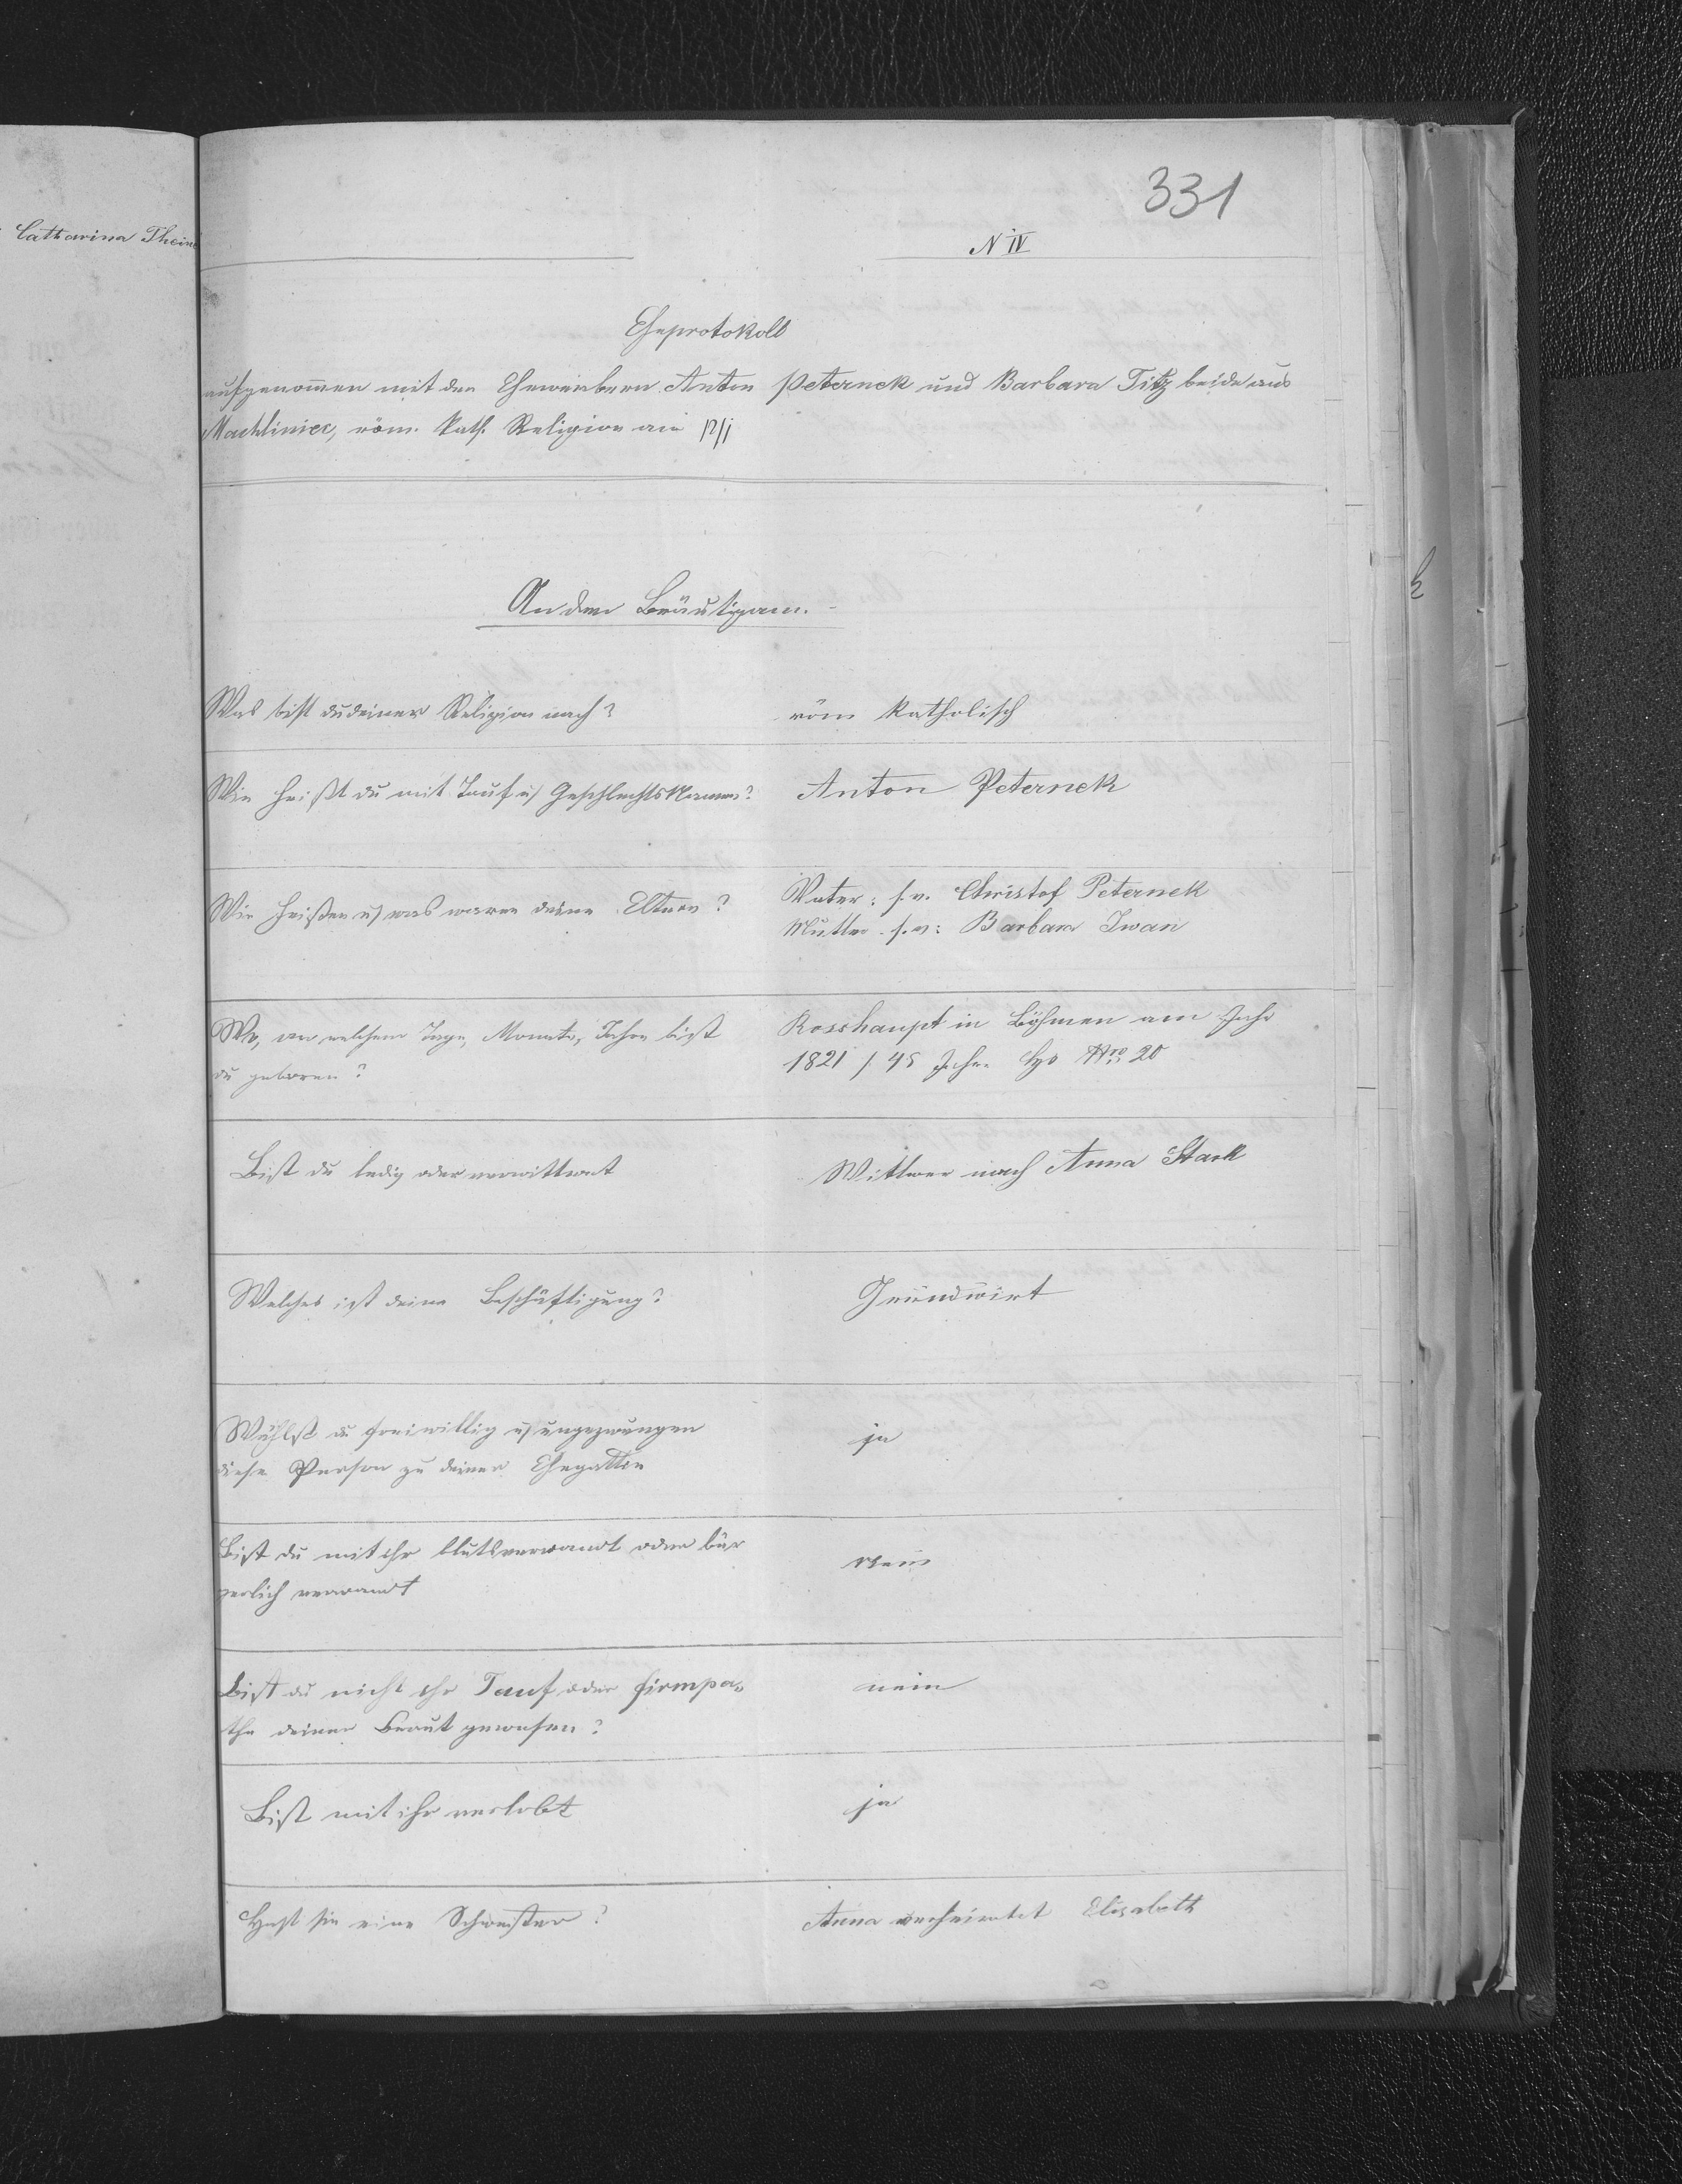 Catharina Thein
331
N IV
Eheprotokoll
aufgenom̅en mit den Ehewerbern Anton Peternek und Barbara Titz beide aus
Machliniec, röm. kath. Religion
An den Bräutigam.
Was bist du deiner Religion nach?
röm katholisch
Wie heißt du mit Tauf u Geschlechtsnamen?
Anton Peternek
Wie heißen u was waren deine Eltern?
Vater: s. v. Christof Peternek
Mutter s. v: Barbara Iwan
Wo, an welchem Tage, Monate, Jahre bist
du geboren?
Rosshaupt in Böhmen am Jahr
1821 / 45 Jahr. Hs Nro 20
Bist du ledig oder verwittwet
Wittwer nach Anna Stark
Welches ist deine Beschäftigung?
Grundwirt
Wählst du freiwillig u ungezwungen
diese Person zu deiner Ehegattin
ja
Bist du mit ihr blutsverwandt oder bür
gerlich verwandt
Nein
Bist du nicht ihr Tauf oder Firmpa„
the deiner Braut gewesen?
nein
Bist mit ihr verlobt
ja
Hast sie eine Schwester?
Anna verheiratet Elisabeth